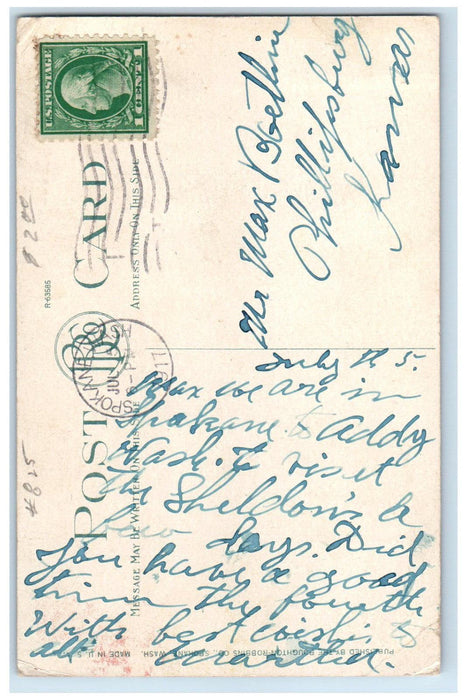 U.S. POSTAGE
1 CENT 1
POST CARD
ADDRESS ONLY ON THIS SIDE
MESSAGE MAY BE WRITTEN ON THIS SIDE
R-63585
SPOKANE WASH
JUL
PM
Mr Max Boettine
Phillipsburg
Kansas
July th 5.
Max we are in
Spokane to Addy
Wash. to viset
the Sheldon's a
few days. Did
you have a good
time the fourth
With best wishes to
all around.
PUBLISHED BY THE BOUGHTON-ROBBINS CO., SPOKANE, WASH. MADE IN U.S.A.
$2.00
4825